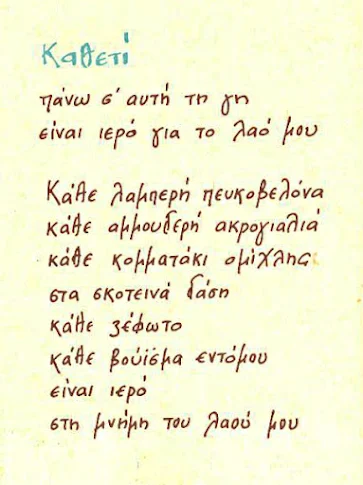 Καθετί
πάνω σ' αυτή τη γη
είναι ιερό για το λαό μου
Κάθε λαμπερή πευκοβελόνα
κάθε αμμουδερή ακρογιαλιά
κάθε κομματάκι ομίχλης
στα σκοτεινά δάση
κάθε ξέφωτο
κάθε βούϊσμα εντόμου
είναι ιερό
στη μνήμη του λαού μου